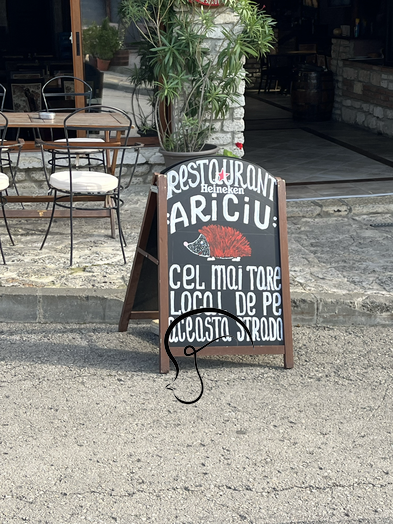 RESTAURANT
Heineken
ARiCiU:
CeL MAi TARe
LOCAL De Pe
ACeASTA STRADA